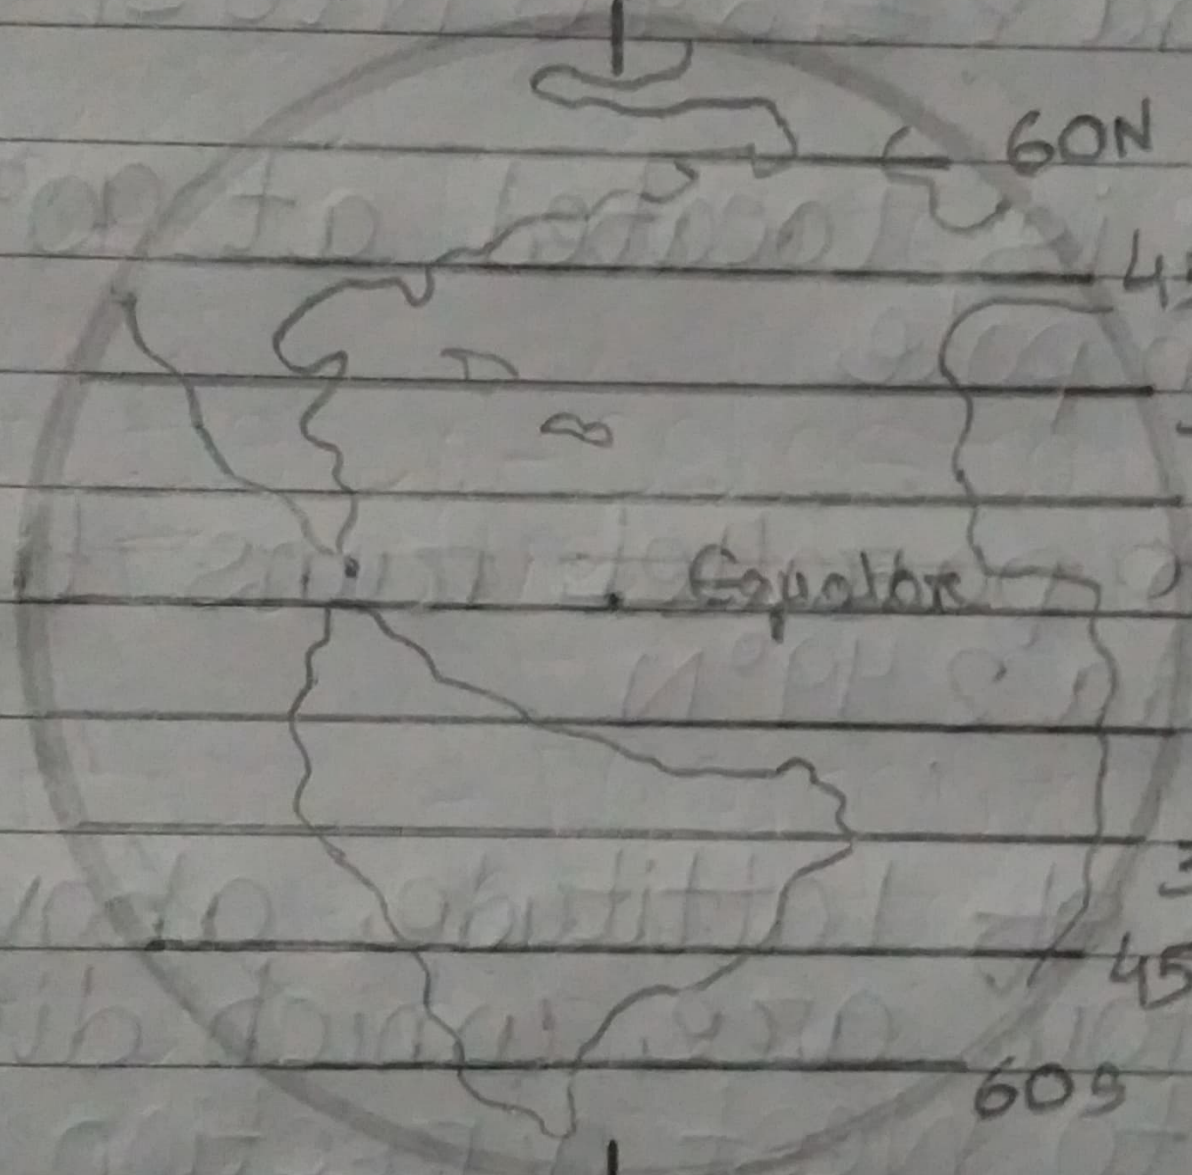 60N
45
Equator
45
60S